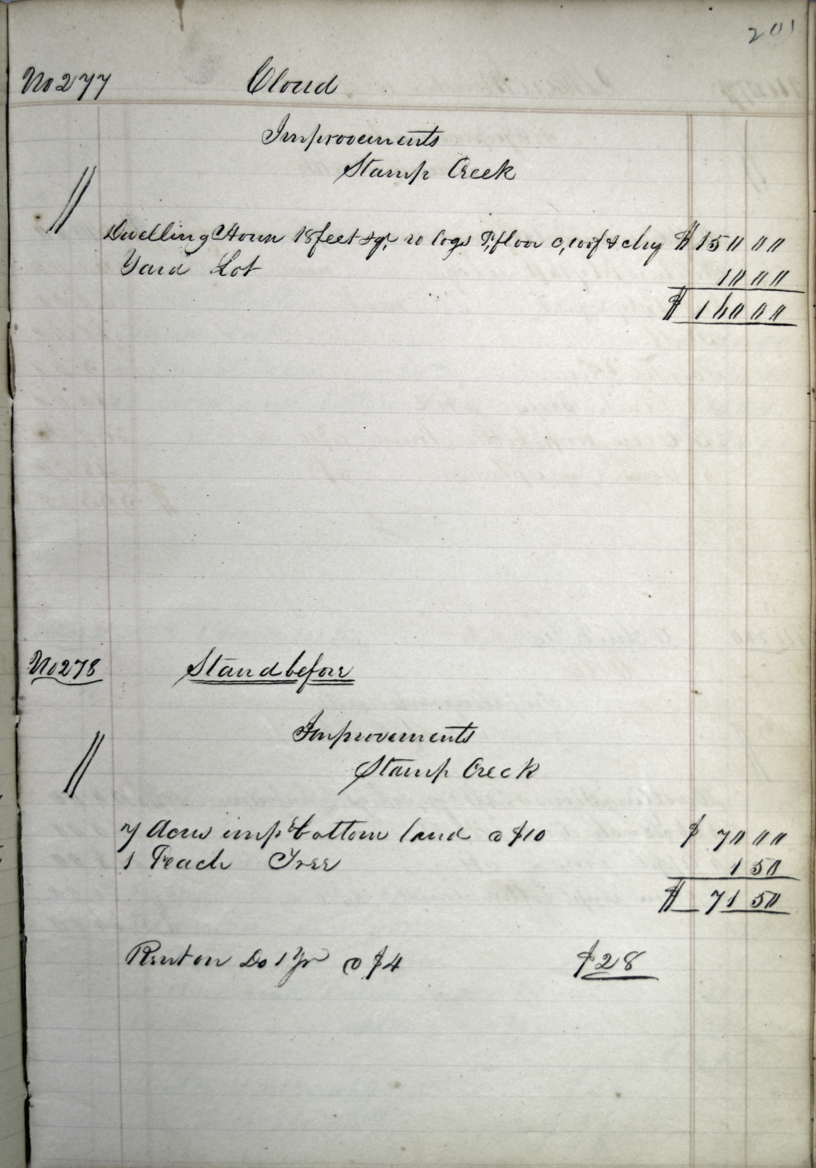 201
No 277 Cloud
Improvements
Stamp Creek
Dwelling House 18 feet sqr, logs P, floor c, roof & chy $ 150 00
Yard Lot 10 00
$ 160 00
No 278 Standbefore
Improvements
Stamp Creek
7 Acres impd bottom land @ $10 $ 70 00
1 Peach Tree 1 50
$ 71 50
Rent on Do 1 Yr @ $4 $28